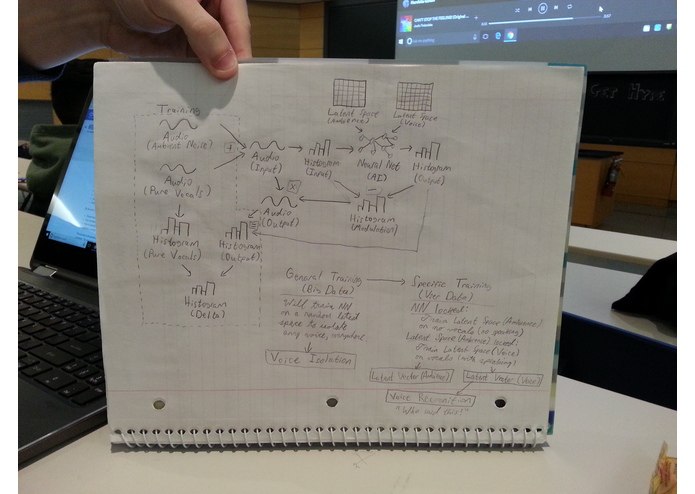 CAN'T STOP THE FEELING! (Original ...
Justin Timberlake
3:57
GET HYPE
Training
Audio
(Ambient Noise)
Audio
(Pure Vocals)
Histogram
(Pure Vocals)
Histogram
(Output)
Histogram
(Delta)
+
Audio
(Input)
Histogram
(Input)
Latent Space
(Ambience)
Latent Space
(Voice)
Neural Net
(AI)
Histogram
(Output)
X
Audio
(Output)
=
Histogram
(Modulation)
General Training
(Big Data)
Will train NN
on a random latent
space to isolate
any voice, anywhere
Voice Isolation
Specific Training
(User Data)
NN locked:
Train Latent Space (Ambiance)
on no vocals (no speaking)
Latent Space (Ambience) locked:
Train Latent Space (Voice)
on vocals (with speaking)
Latent Vector (Ambience)
Latent Vector (Voice)
Voice Recognition
"Who said this?"